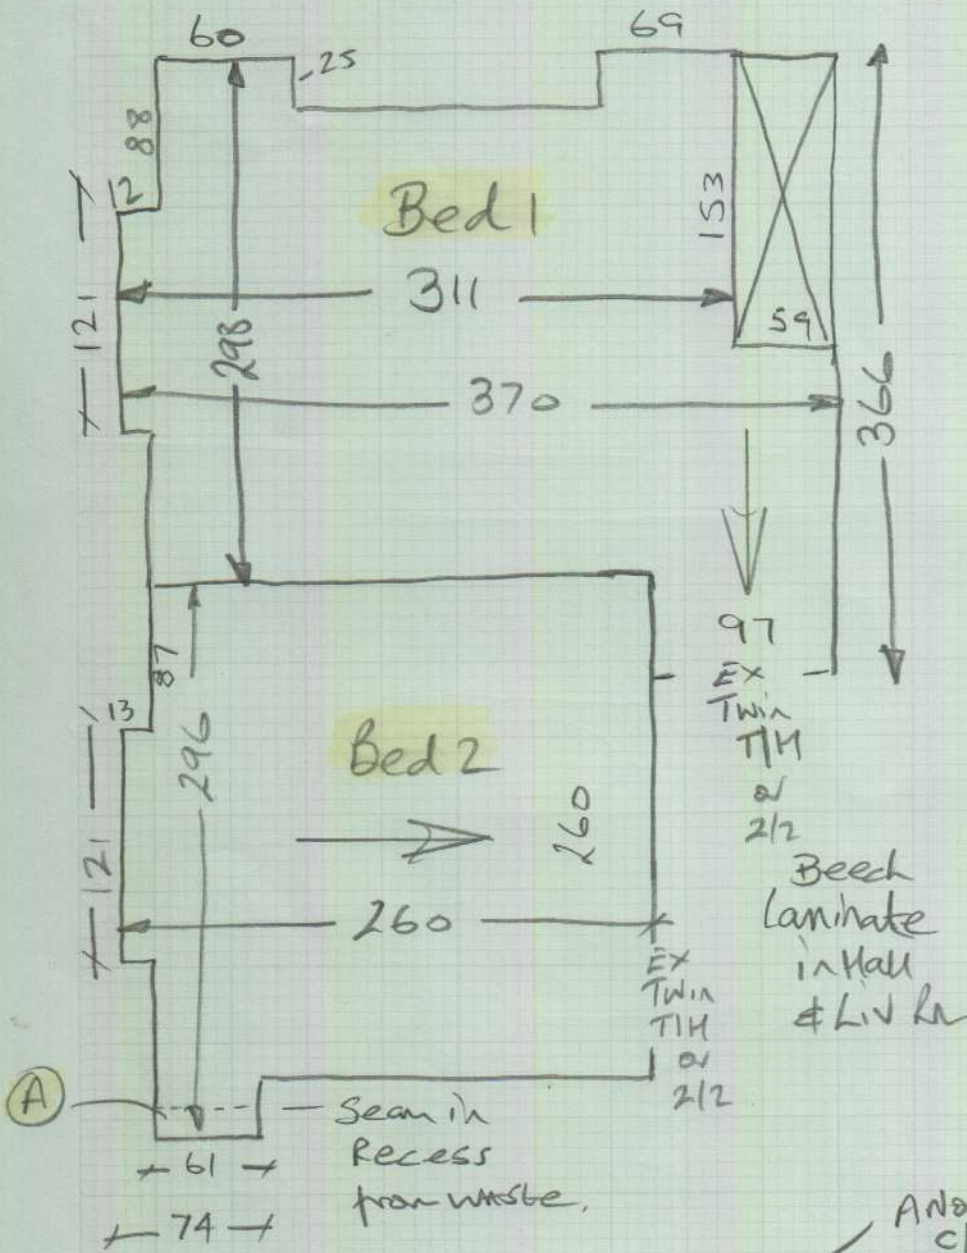 60
25
69
88
12
Bed 1
153
311
59
121
298
370
366
97
EX
Twin
T/H
or
2/2
87
13
296
Bed 2
260
121
260
Beech
Laminate
in Hall
& Liv Rm
EX
Twin
T/H
or
2/2
A
Seam in
Recess
from waste.
61
74